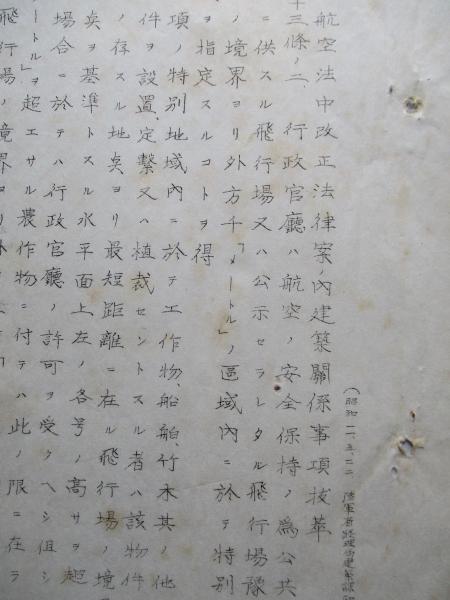 航空法中改正法律案ノ內建築關係事項拔萃
(昭和一一、五、二二 陸軍省經理局建築課
十三條ノ二、行政官廳ハ航空ノ安全保持ノ爲公共
ニ供スル飛行場又ハ公示セラレタル飛行場豫
ノ境界ヨリ外方千「メートル」ノ區域內ニ於テ特別
ヲ指定スルコトヲ得
項ノ特別地域內ニ於テ工作物、船舶、竹木其ノ他
件ヲ設置、定繫又ハ植裁セントスル者ハ該物件
ノ存スル地奌ヨリ最短距離ニ在ル飛行場ノ境
奌ヲ基準トスル水平面上左ノ各号ノ高サヲ超
場合ニ於テハ行政官廳ノ許可ヲ受クヘシ但シ
ートル」ヲ超エサル農作物ニ付テハ此ノ限ニ在ラ
飛行場ノ境界